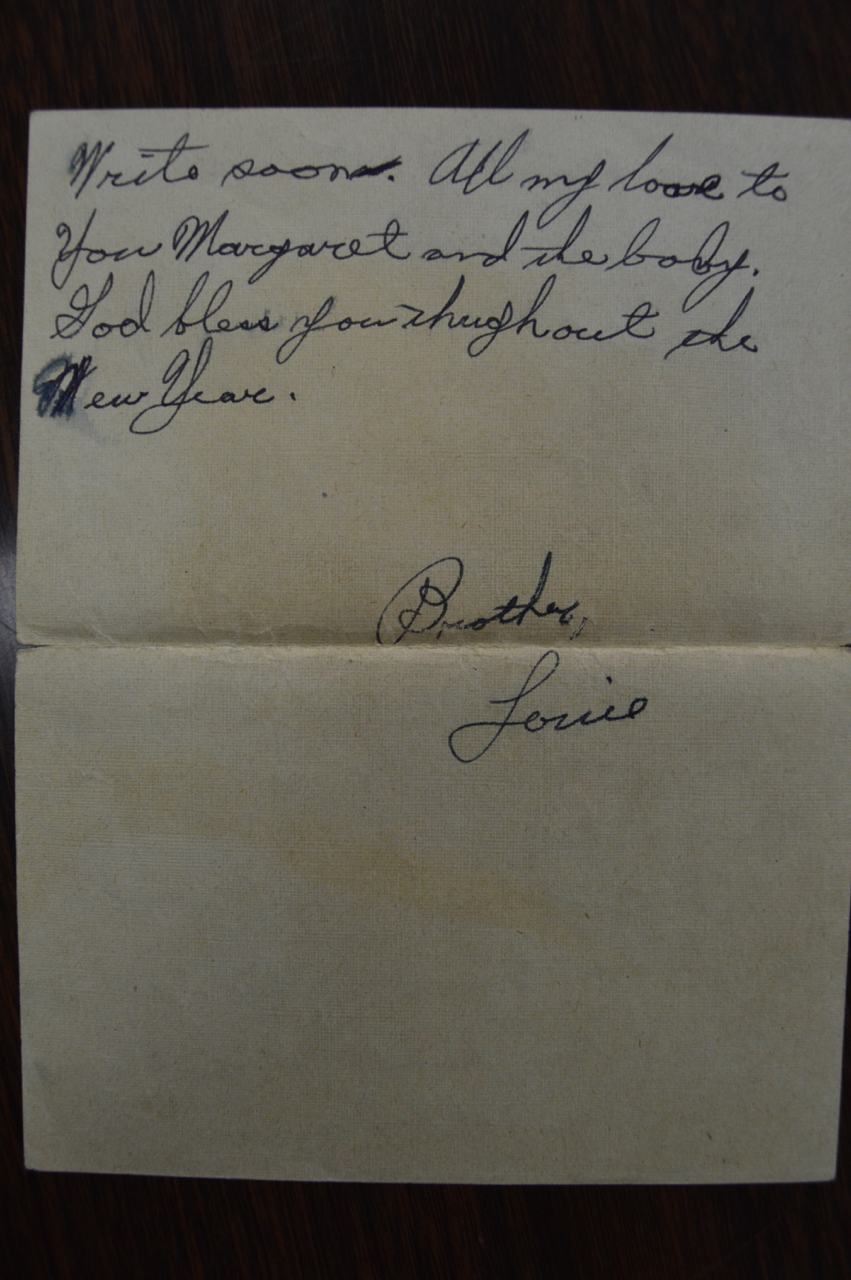 Write soon. All my love to
You Margaret and the baby.
God bless you thughout the
New Year.
Brother,
Louie